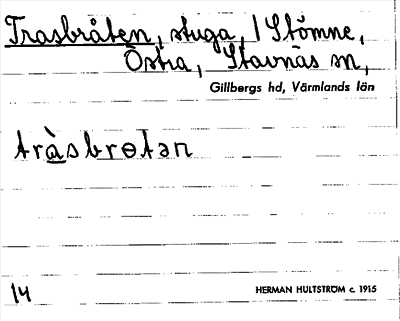 Trasbråten, stuga, / Stömne,
Östra, Stavnäs sn,
Gillbergs hd, Värmlands län
tràsbrɵtən
14
HERMAN HULTSTRÖM c. 1915